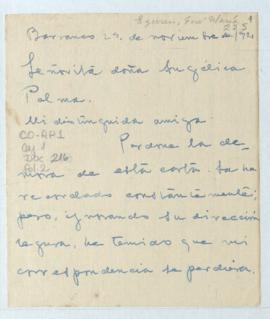 Eguren, José María
Barranco 29 de noviembre de 1921
Señorita doña Angélica
Palma.
Mi distinguida amiga
Perdone la de-
mora de esta carta. La he
recordado constantemente;
pero, ignorando su dirección
segura, he temido que mi
correspondencia se perdiera.
CO-AP1